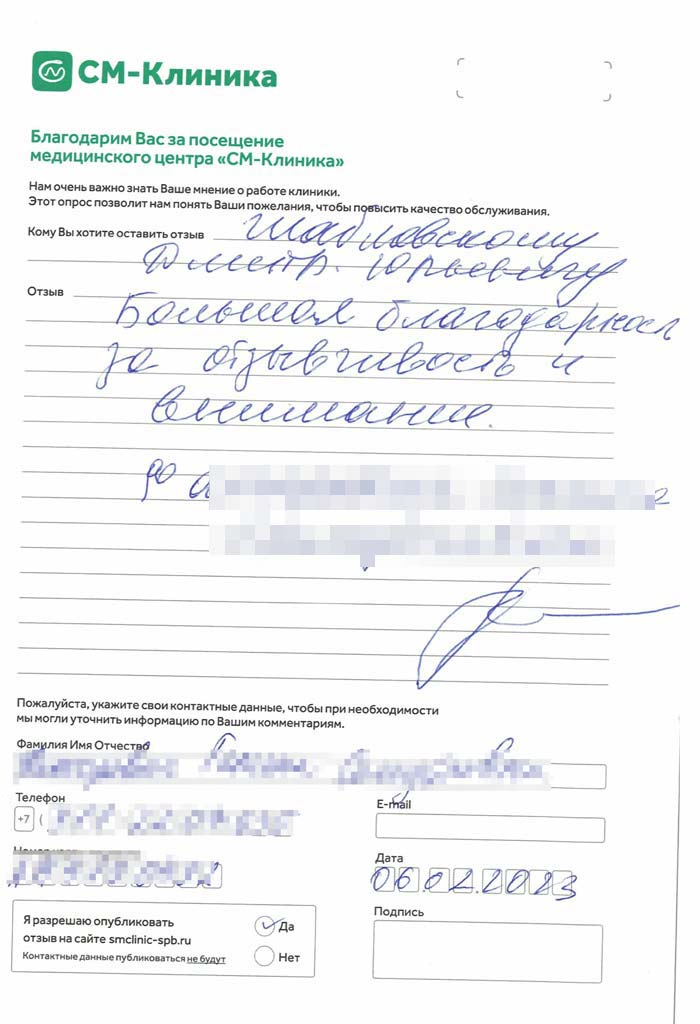 СМ-Клиника
Благодарим Вас за посещение
медицинского центра «СМ-Клиника»
Нам очень важно знать Ваше мнение о работе клиники.
Этот опрос позволит нам понять Ваши пожелания, чтобы повысить качество обслуживания.
Кому Вы хотите оставить отзыв Шабловскому
Дмитр. Юрьевичу
Отзыв Большая благодарност
за отзывчивость и
внимание.
Пожалуйста, укажите свои контактные данные, чтобы при необходимости
мы могли уточнить информацию по Вашим комментариям.
Фамилия Имя Отчество
Телефон
E-mail
+7 (
Дата
06.02.2023
Я разрешаю опубликовать
отзыв на сайте smclinic-spb.ru
Контактные данные публиковаться не будут
Да
Нет
Подпись